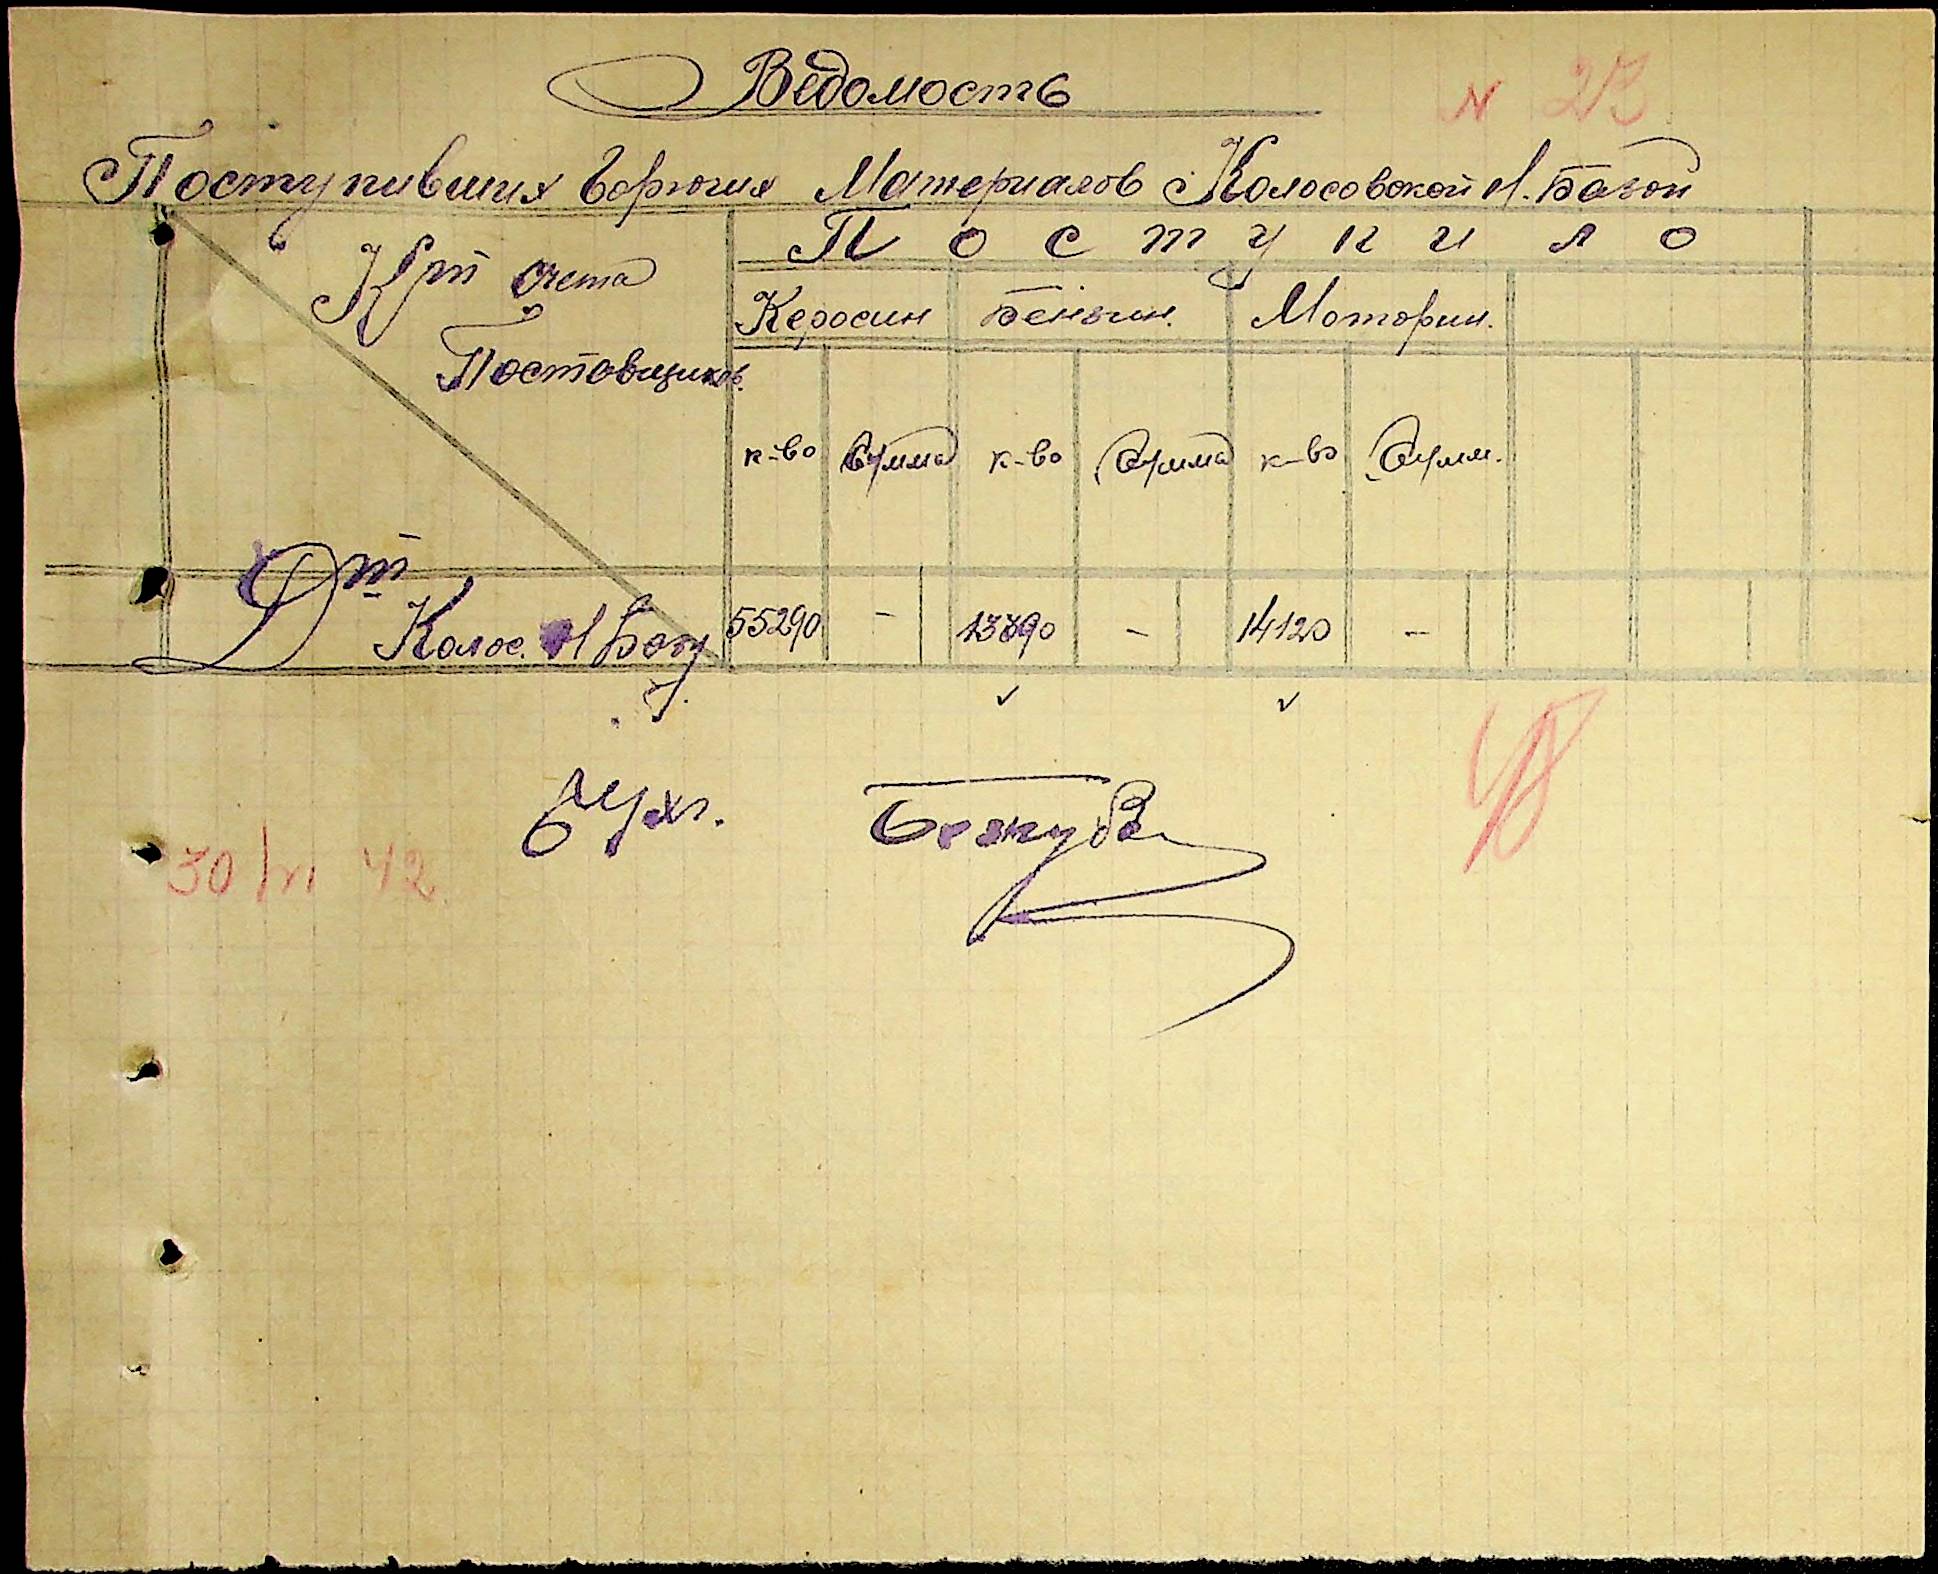 Ведомость
N
Поступивших Горючих Материалов Колосовской Н. Базой
Кт счета
Поставщиков.
Поступило
Керосин Бензин. Моторин.
к-во Сумма к-во Сумма к-во Сумм.
Дт
Колос. Н Базу 55290 - 13390 - 14120 -
✓ ✓
Бухг.
30/VI 42